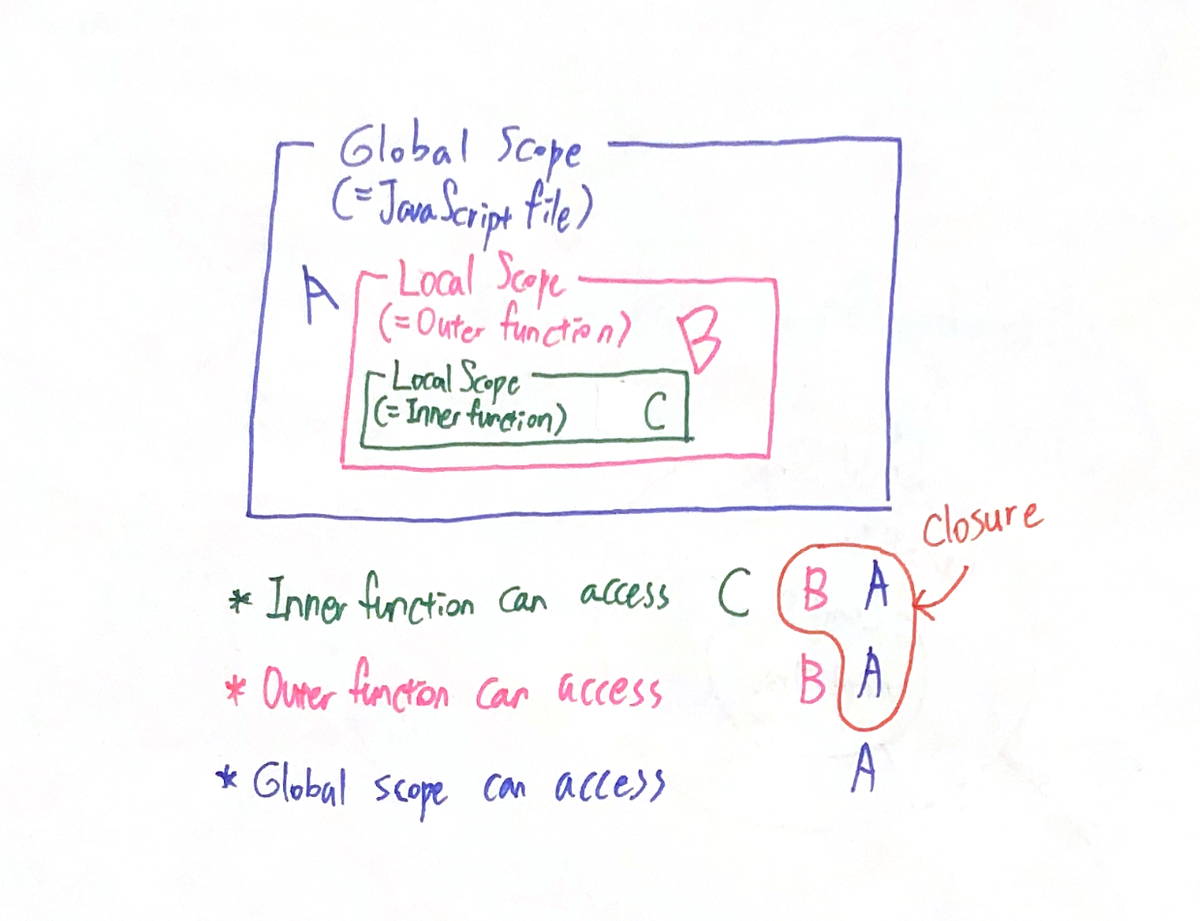 Global Scope
(=JavaScript file)
A
Local Scope
(=Outer function)
B
Local Scope
(=Inner function)
C
closure
* Inner function can access C B A
* Outer function can access B A
* Global scope can access A